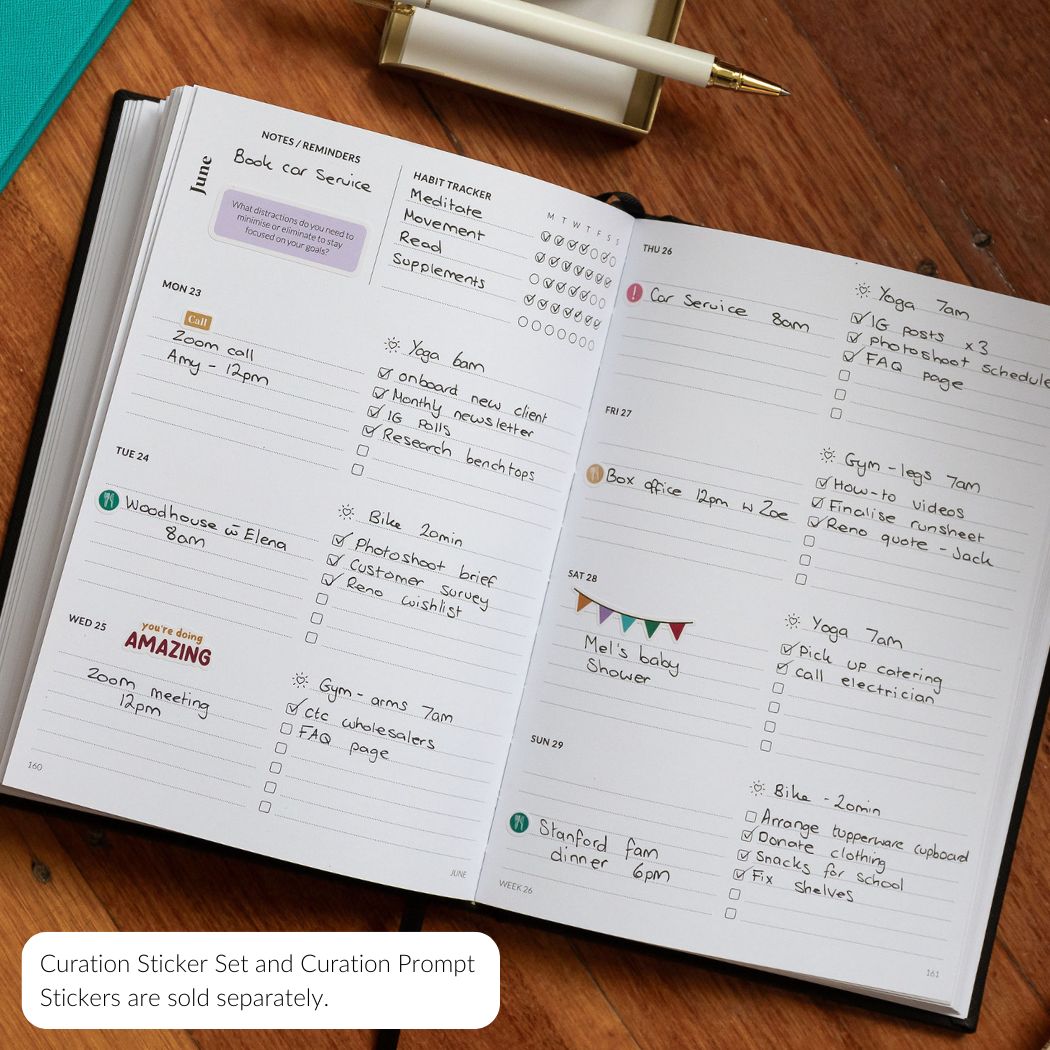 June
NOTES / REMINDERS
Book car service
What distractions do you need to
minimise or eliminate to stay
focused on your goals?
HABIT TRACKER
M T W T F S S
Meditate
Movement
Read
Supplements
MON 23
Call
Zoom call
Amy - 12pm
Yoga 6am
onboard new client
Monthly newsletter
IG Polls
Research benchtops
TUE 24
Woodhouse w̄ Elena
8am
Bike 20min
Photoshoot brief
Customer survey
Reno wishlist
WED 25
you're doing
AMAZING
Zoom meeting
12pm
Gym - arms 7am
ctc wholesalers
FAQ page
160
JUNE
THU 26
!
Car Service 8am
Yoga 7am
IG posts x3
Photoshoot schedule
FAQ page
FRI 27
Box office 12pm w Zoe
Gym - legs 7am
How-to videos
Finalise runsheet
Reno quote - Jack
SAT 28
Mel's baby
Shower
Yoga 7am
Pick up catering
call electrician
SUN 29
Stanford fam
dinner 6pm
Bike - 20min
Arrange tupperware cupboard
Donate clothing
Snacks for school
Fix shelves
WEEK 26
161
Curation Sticker Set and Curation Prompt
Stickers are sold separately.